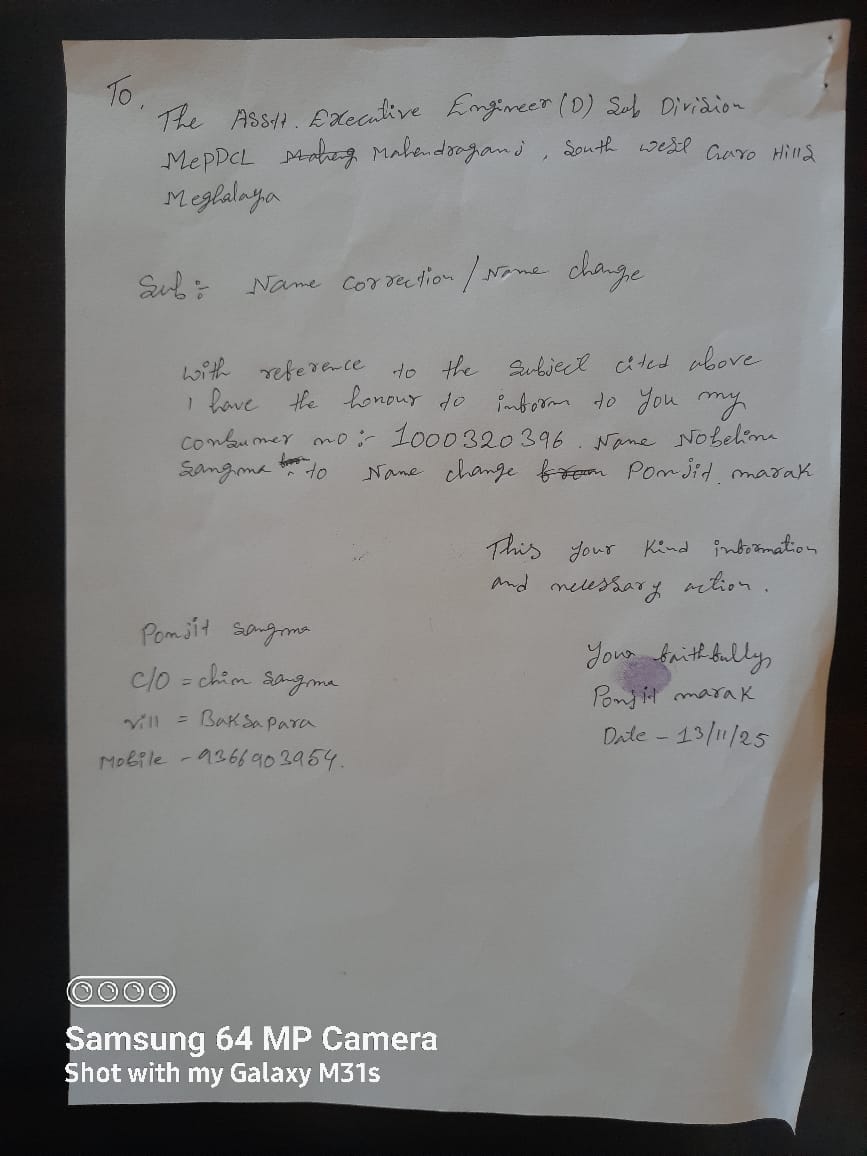 To,
The Asstt. Executive Engineer (D) Sub Division
MePDCL Mahendraganj, South west Garo Hills
Meghalaya
Sub:- Name correction / Name change
with reference to the subject cited above
I have the honour to inform to you my
consumer no:- 1000320396. Name Nobelina
Sangma to Name change from Ponjit marak
This your kind information
and necessary action.
Ponjit Sangma
C/O = chim Sangma
vill = BakSapara
Mobile - 9366903954.
Your faithfully,
Ponjit marak
Date - 13/11/25
Samsung 64 MP Camera
Shot with my Galaxy M31s